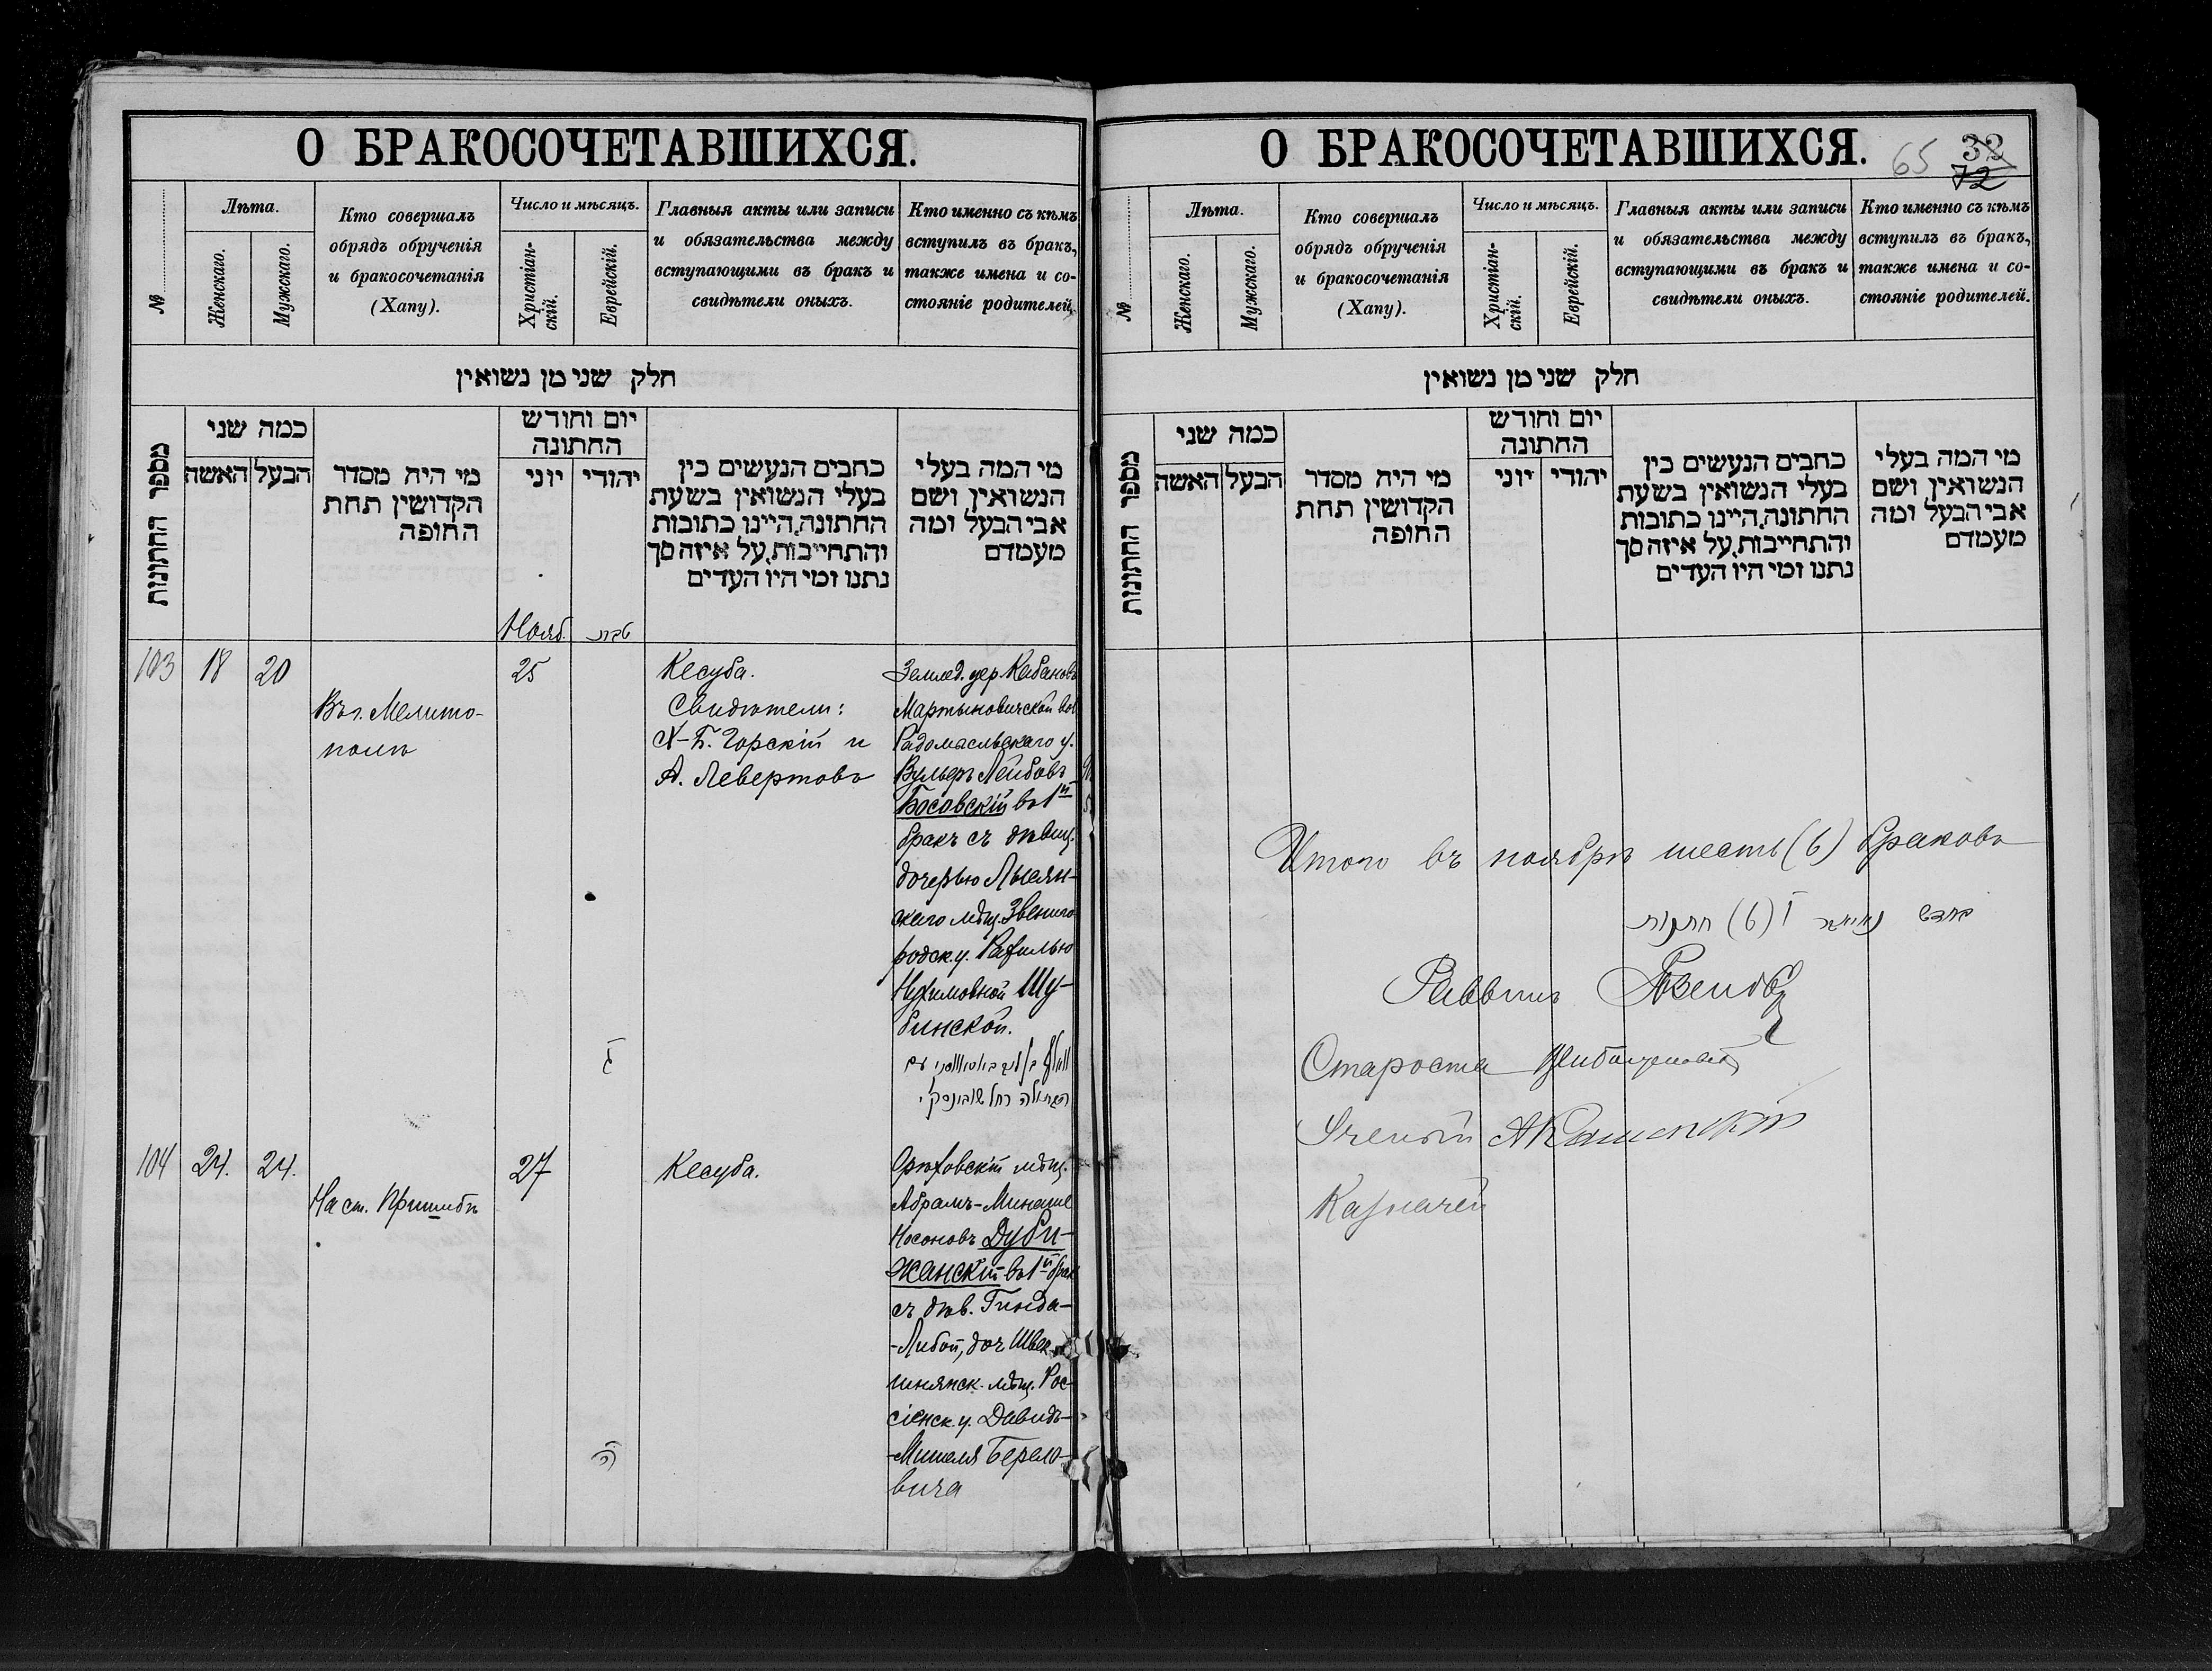 О БРАКОСОЧЕТАВШИХСЯ.
№
Лѣта.
Женскаго.
Мужскаго.
Кто совершалъ
обрядъ обрученія
и бракосочетанія
(Хапу).
Число и мѣсяцъ.
Христіан-
скій.
Еврейскій.
Главныя акты или записи
и обязательства между
вступающими въ бракъ и
свидѣтели оныхъ.
Кто именно съ кѣмъ
вступилъ въ бракъ,
также имена и со-
стояніе родителей.
חלק שני מן נשואין
מספר החתונות
כמה שני
האשה
הבעל
מי היה מסדר
הקדושין תחת
החופה
יום וחודש
החתונה
יוני
יהודי
כתבים הנעשים בין
בעלי הנשואין בשעת
החתונה, היינו כתובות
והתחייבות, על איזה סך
נתנו ומי היו העדים
מי המה בעלי
הנשואין ושם
אבי הבעל ומה
מעמדם
Нояб.
טבת
103
18
20
Въ г. Мелито-
полѣ
25
ג
Кесуба.
Свидѣтели:
Х-Б. Горскій и
А. Левертовъ
Землед. дер. Кабановъ
Мартыновичской вол
Радомысльскаго у.
Вульфъ Лейбовъ
Босовскій въ 1й
бракъ съ дѣвиц.
дочерью Лысян-
скаго мѣщ. Звениго-
родск. у. Рахилью
Нухимовной Шу-
бинской.
הבתולה רחל שובינסקי
104
24.
24.
На ст. Пришибъ
27
ה
Кесуба.
Орѣховскій мѣщ.
Абрамъ-Минаше
Носоновъ Дуби-
жанскій въ 1й брак
съ дѣв. Гинда-
-Либой, доч Швек-
шнянск. мѣщ. Рос-
сіенск. у. Давидъ-
-Мишеля Берело-
вича
О БРАКОСОЧЕТАВШИХСЯ.
65
32
72
№
Лѣта.
Женскаго.
Мужскаго.
Кто совершалъ
обрядъ обрученія
и бракосочетанія
(Хапу).
Число и мѣсяцъ.
Христіан-
скій.
Еврейскій.
Главныя акты или записи
и обязательства между
вступающими въ бракъ и
свидѣтели оныхъ.
Кто именно съ кѣмъ
вступилъ въ бракъ,
также имена и со-
стояніе родителей.
חלק שני מן נשואין
מספר החתונות
כמה שני
האשה
הבעל
מי היה מסדר
הקדושין תחת
החופה
יום וחודש
החתונה
יוני
יהודי
כתבים הנעשים בין
בעלי הנשואין בשעת
החתונה, היינו כתובות
והתחייבות, על איזה סך
נתנו ומי היו העדים
מי המה בעלי
הנשואין ושם
אבי הבעל ומה
מעמדם
Итого въ ноябрѣ шесть (6) браковъ
ו (6) חתונות
Раввинъ
Староста
Ученый
Казначей